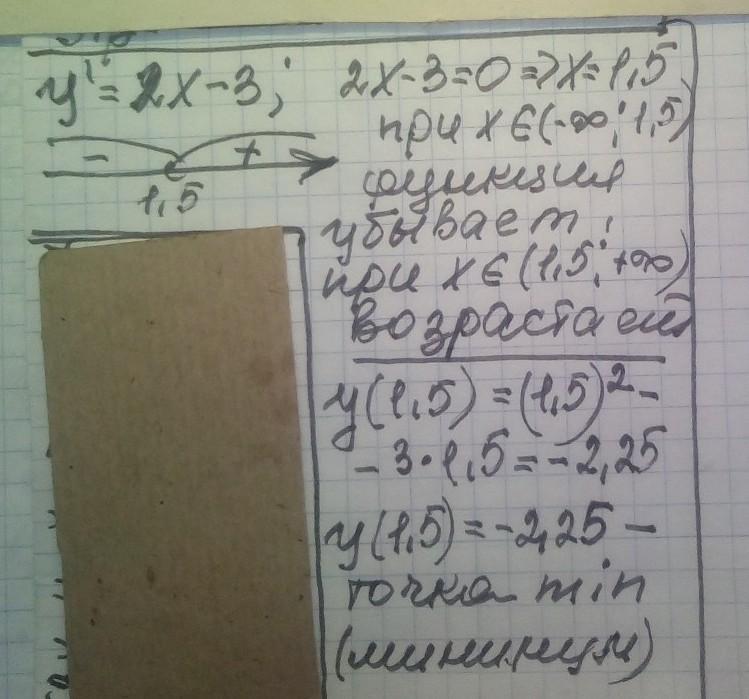 y' = 2x-3;
- +
1,5
2x-3=0 => x=1,5
при x∈(-∞; 1,5)
функция
убывает,
при x∈(1,5; +∞)
возрастает
y(1,5) = (1,5)² -
- 3·1,5 = -2,25
y(1,5) = -2,25 -
точка min
(минимум)